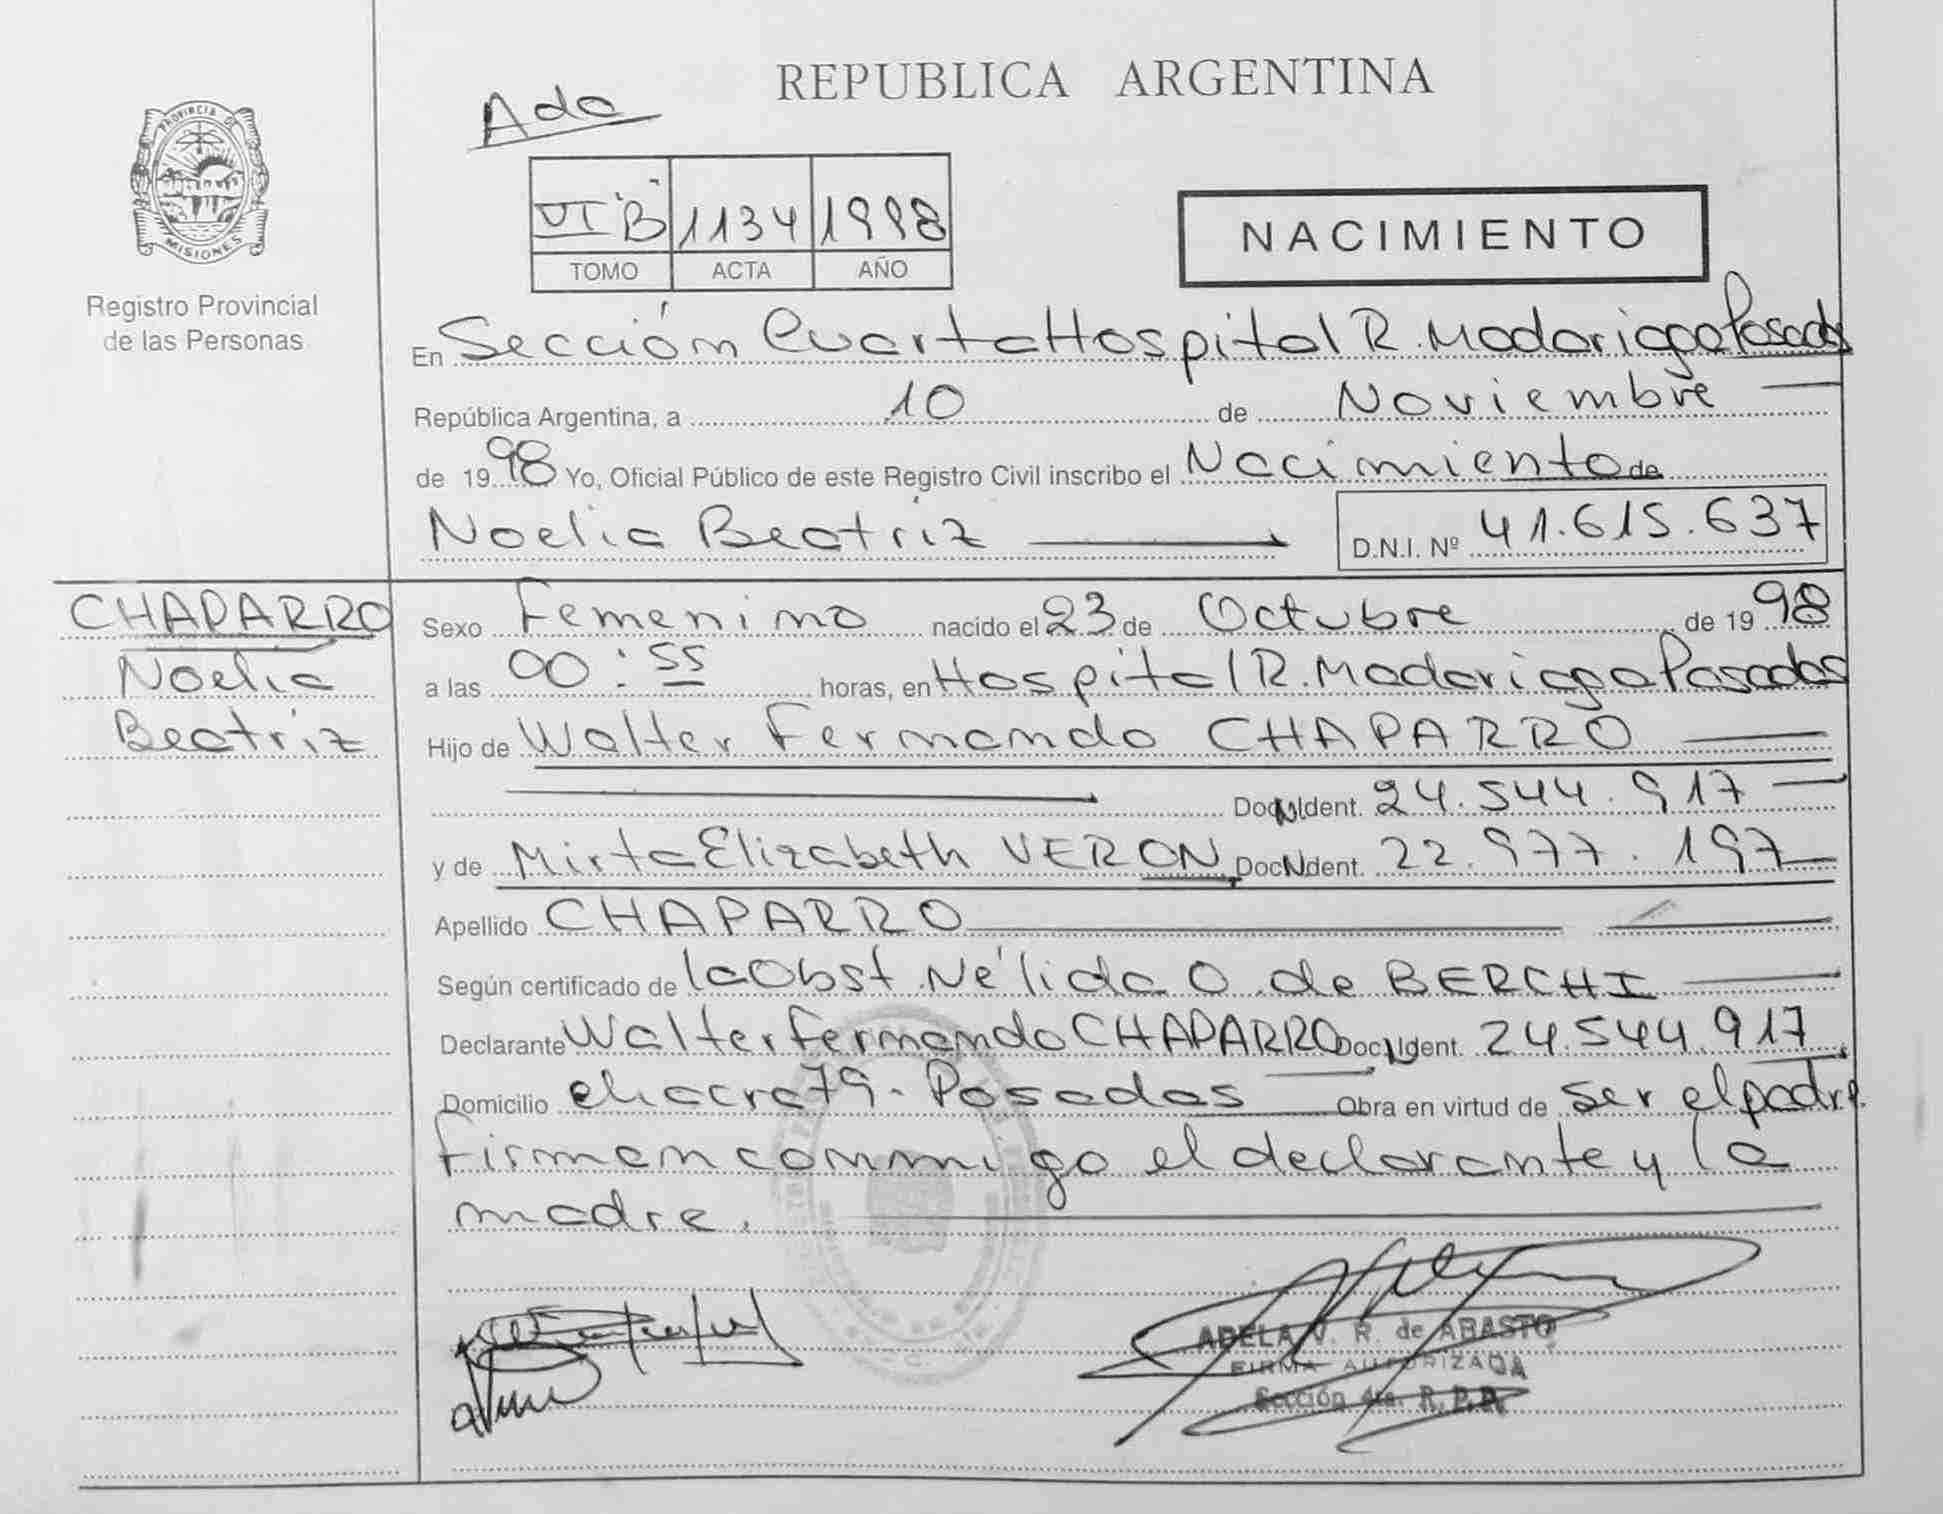 REPUBLICA ARGENTINA
Ada
PROVINCIA DE
MISIONES
Registro Provincial
de las Personas
VI "B" 1134 1998
TOMO ACTA AÑO
NACIMIENTO
En Sección Cuarta Hospital R. Madariaga Posadas
República Argentina, a 10 de Noviembre
de 1998 Yo, Oficial Público de este Registro Civil inscribo el Nacimiento de
Noelia Beatriz
D.N.I. Nº 41.615.637
CHAPARRO
Noelia
Beatriz
Sexo Femenino nacido el 23 de Octubre de 1998
a las 00:55 horas, en Hospital R. Madariaga Posadas
Hijo de Walter Fernando CHAPARRO
Doc. Ident. 24.544.917
y de Mirta Elizabeth VERON Doc. Ident. 22.977.197
Apellido CHAPARRO
Según certificado de la Obst. Nélida O. de BERCHI
Declarante Walter Fernando CHAPARRO Doc. Ident. 24.544.917
Domicilio chacra 79 - Posadas Obra en virtud de ser el padre.
Firman conmigo el declarante y la
madre.
ADELA V. R. de ARASTO
FIRMA AUTORIZADA
Sección 4ta. R.P.P.